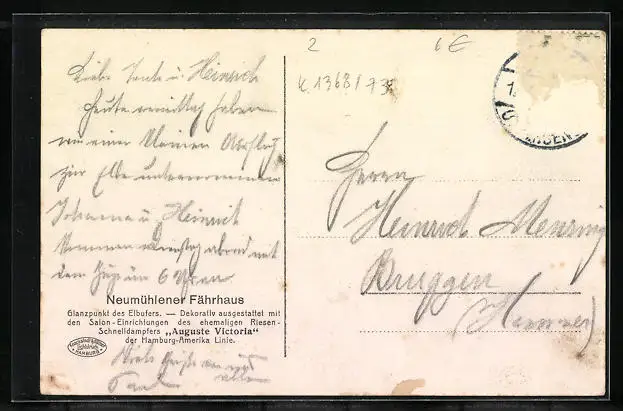 Liebe Tante u. Heinrich
Heute vormittag haben
wir einen kleinen Ausflug
zur Elbe unternommen
Johanna u. Heinrich
kommen Dienstag abend mit
dem Zuge um 6 Uhren
Neumühlener Fährhaus
Glanzpunkt des Elbufers. — Dekorativ ausgestattet mit
den Salon-Einrichtungen des ehemaligen Riesen-
Schnelldampfers „Auguste Victoria"
der Hamburg-Amerika Linie.
HAMBURG
2
6 €
K.13681 73
Herrn
Heinrich Mensing
Brüggen
(Hannover)